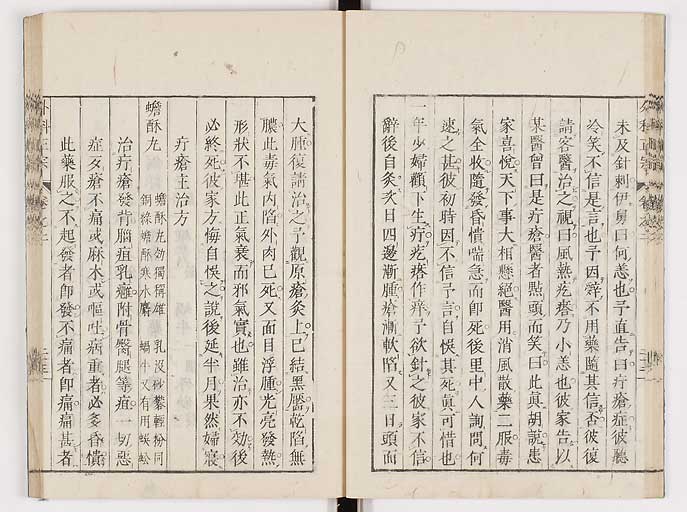 未及針刺伊舅曰何恙也予直告曰疔瘡症彼聽
冷笑不信是言也予因辭不用藥隨其信否彼復
請客醫治之視曰風熱疙瘩乃小恙也彼家告以
某醫曾曰是疔瘡醫者㸃頭而笑曰此真胡說患
家喜悅天下事大相懸絕醫用消風散藥二服毒
氣全收隨發昏憒喘急而即死後里中人詢問何
速之甚彼初時因不信予言自悞其死真可惜也
一年少婦顴下生疔疙瘩作痒予欲針之彼家不信
辭後自灸次日四邊漸腫瘡漸軟陷又三日頭面
大腫復請治之予觀原瘡灸上已結黑靨乾陷無
膿此毒氣內陷外肉已死又面目浮腫光亮發熱
形狀不堪此正氣衰而邪氣實也雖治亦不効後
必終死彼家方悔自悞之說後延半月果然婦寢
疔瘡主治方
蟾酥丸
蟾酥丸効獨稱雄 乳没砂礬輕粉同
銅綠蟾酥寒水麝 蝸牛又有用蜈蚣
治疔瘡發背腦疽乳癰附骨臀腿等疽一切惡
症歹瘡不痛或麻木或嘔吐病重者必多昏憒
此藥服之不起發者即發不痛者即痛痛甚者
外科正宗
卷之二